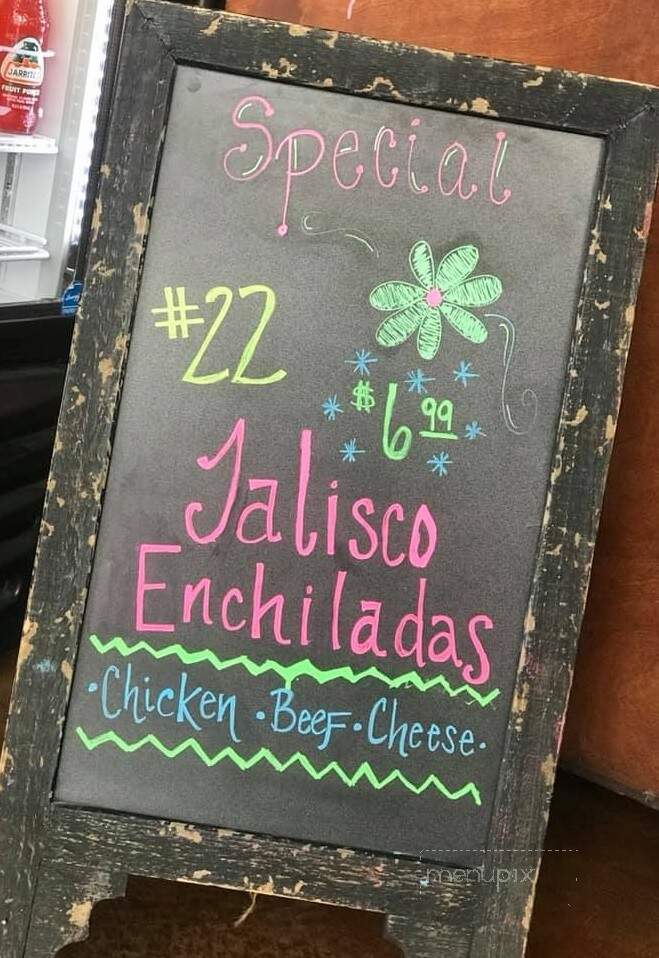 JARRITOS
FRUIT PUNCH
Special
#22
$6.99
Jalisco
Enchiladas
·Chicken ·Beef·Cheese·
menupix